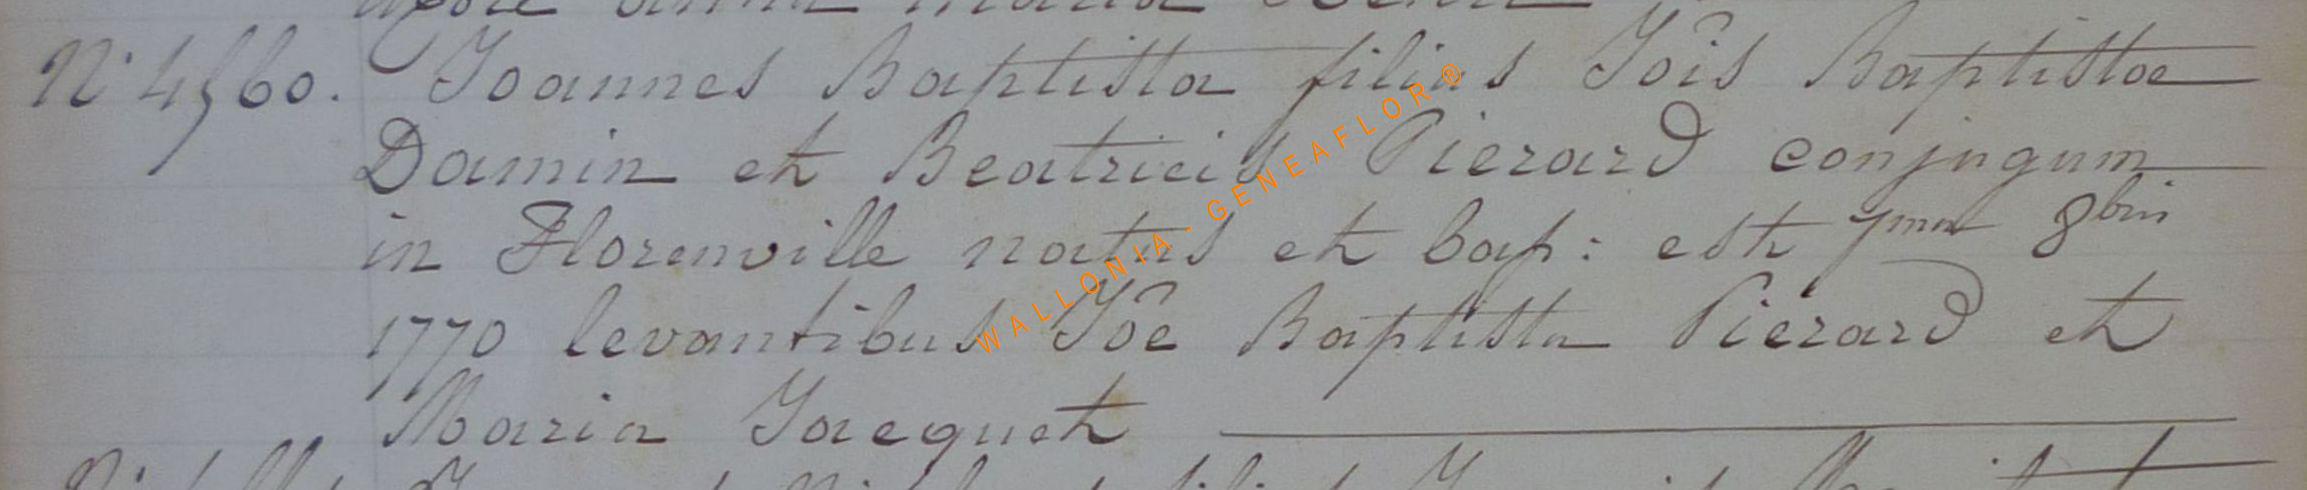 N° 4560. Joannes Baptista filius Jois Baptistae
Damin et Beatricis Pierard conjugum
in Florenville natus et bap: est 7ma 8bris
1770 levantibus Joe Baptista Pierard et
Maria Jacquet
WALLONIA - GENEAFLOR®